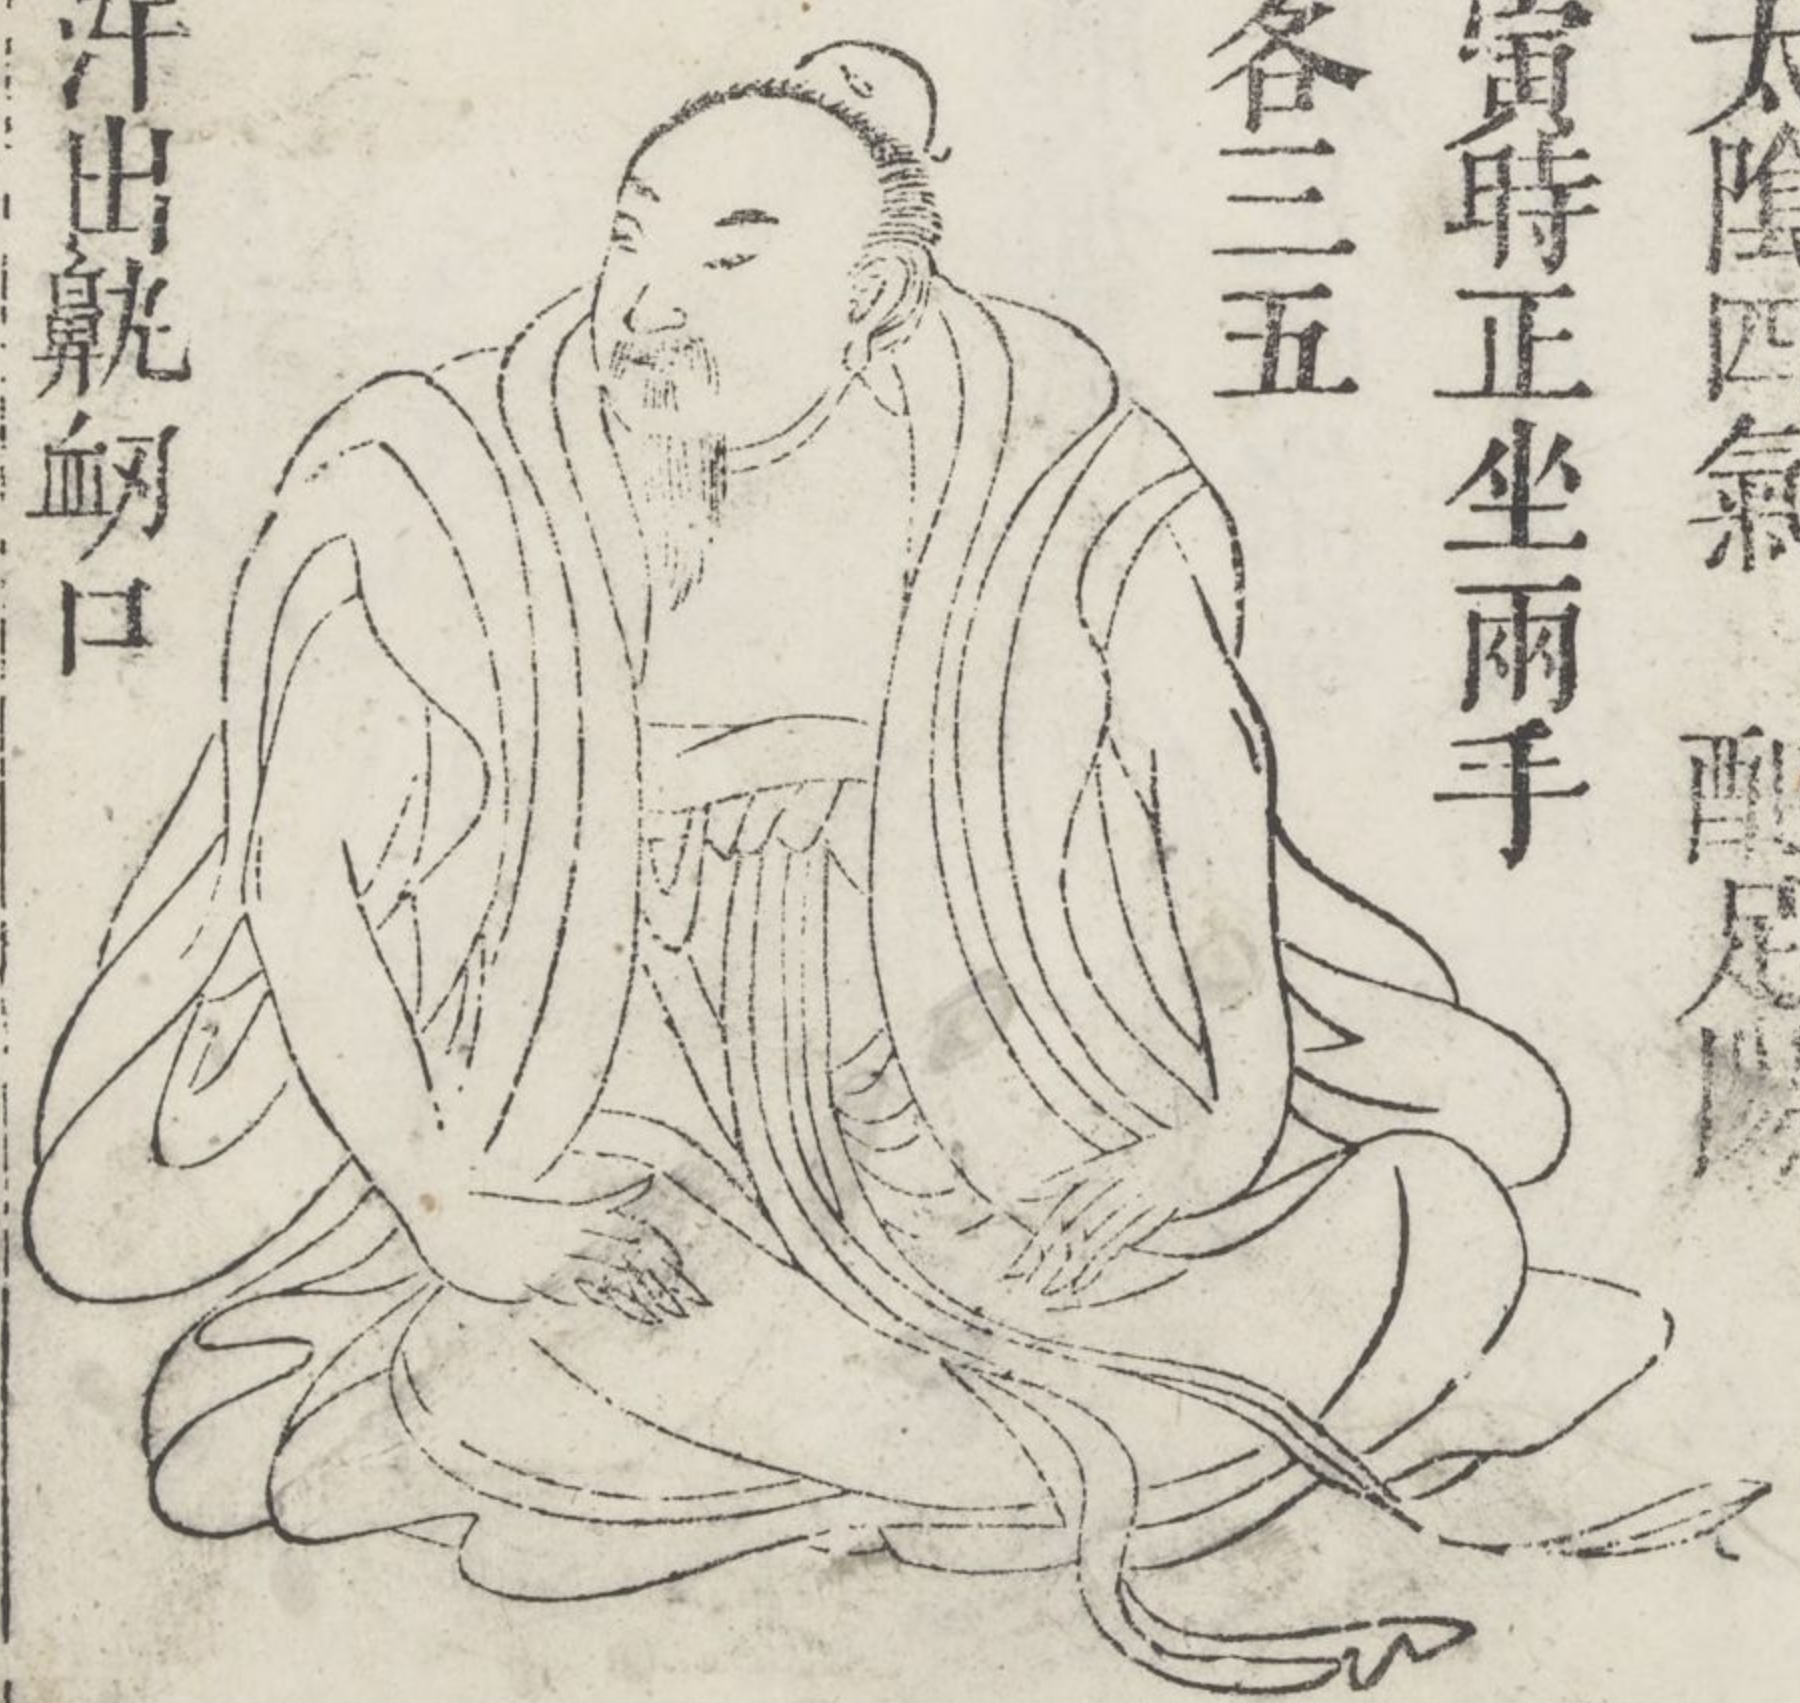 太隂四氣 配足陽
寅時正坐兩手
各三五
汗出鼽衂口